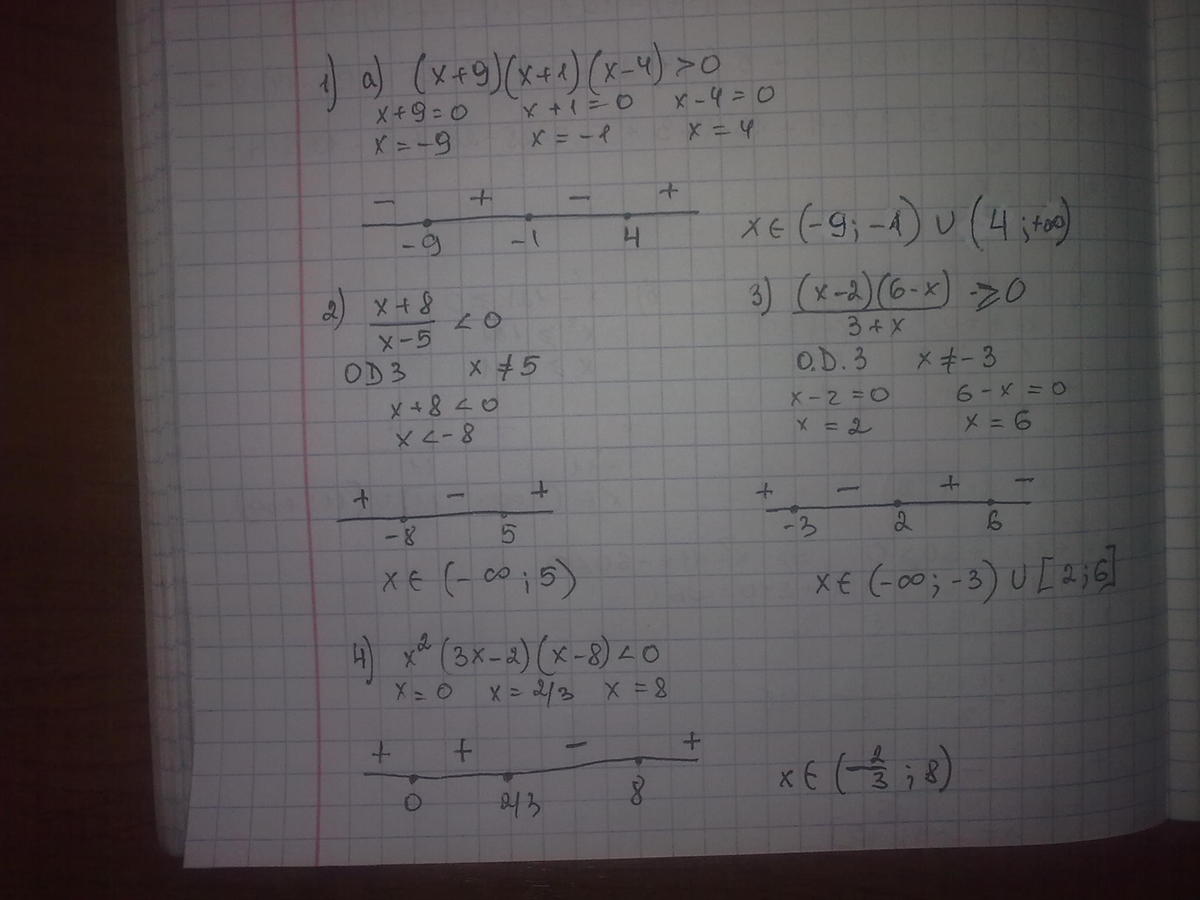 1) a) (x+9)(x+1)(x-4) > 0
x+9=0 x+1=0 x-4=0
x=-9 x=-1 x=4
- + - +
-9 -1 4
x∈(-9;-1)∪(4;+∞)
2) x+8/x-5 < 0
ОДЗ x≠5
x+8<0
x<-8
+ - +
-8 5
x∈(-∞;5)
3) (x-2)(6-x)/3+x ≥ 0
О.Д.З x≠-3
x-2=0 6-x=0
x=2 x=6
+ - + -
-3 2 6
x∈(-∞;-3)∪[2;6]
4) x²(3x-2)(x-8)<0
x=0 x=2/3 x=8
+ + - +
0 2/3 8
x∈(-2/3;8)